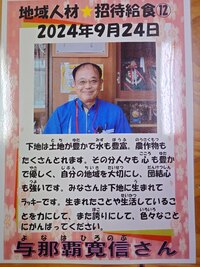 地域人材★招待給食⑫
2024年9月24日
下地は土地が豊かで水も豊富、農作物も
たくさんとれます。その分人々も心も豊か
で優しく、自分の地域を大切にし、団結心
も強いです。みなさんは下地に生まれて
ラッキーです。生まれたことや生活しているこ
とを力にして、また誇りにして、色々なこと
にがんばってください。
よなはひろのぶ
与那覇寛信さん